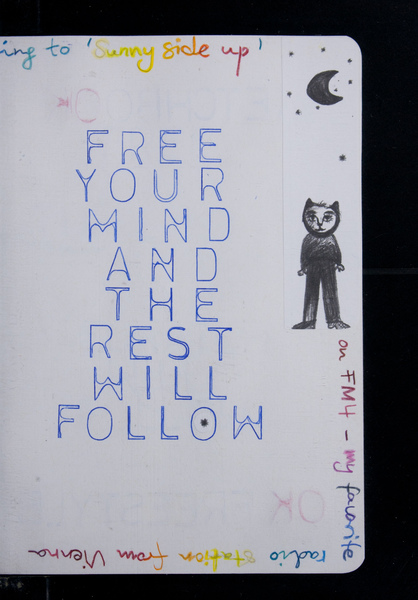 ing to 'Sunny side up'
FREE
YOUR
MIND
AND
THE
REST
WILL
FOLLOW
on FM4 - my favorite
radio station from Vienna